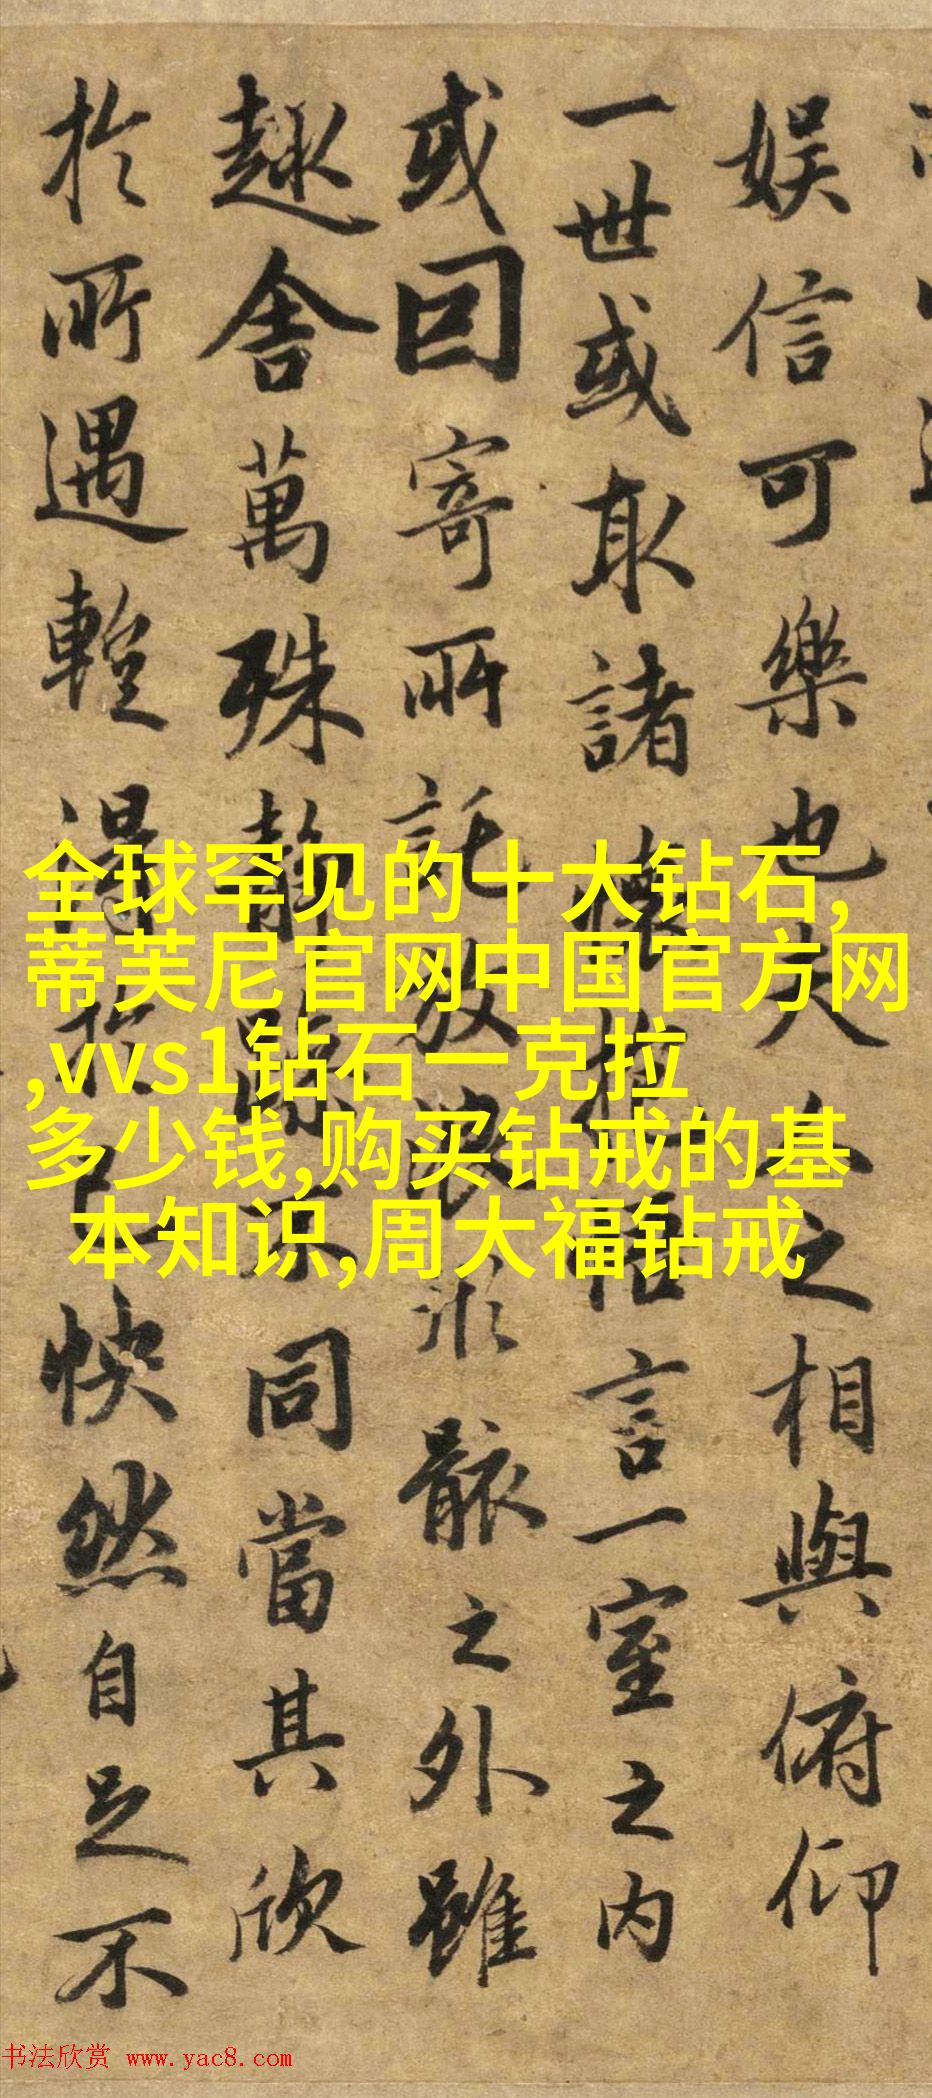 娱信可樂也夫人之相與俯仰
一世或取諸懷抱悟言一室之内
或因寄所託放浪形骸之外雖
趣舍萬殊靜躁不同當其欣
於所遇暫得於己怏然自足不
全球罕见的十大钻石,
蒂芙尼官网中国官方网
,vvs1钻石一克拉
多少钱,购买钻戒的基
本知识,周大福钻戒
书法欣赏 www.yac8.com